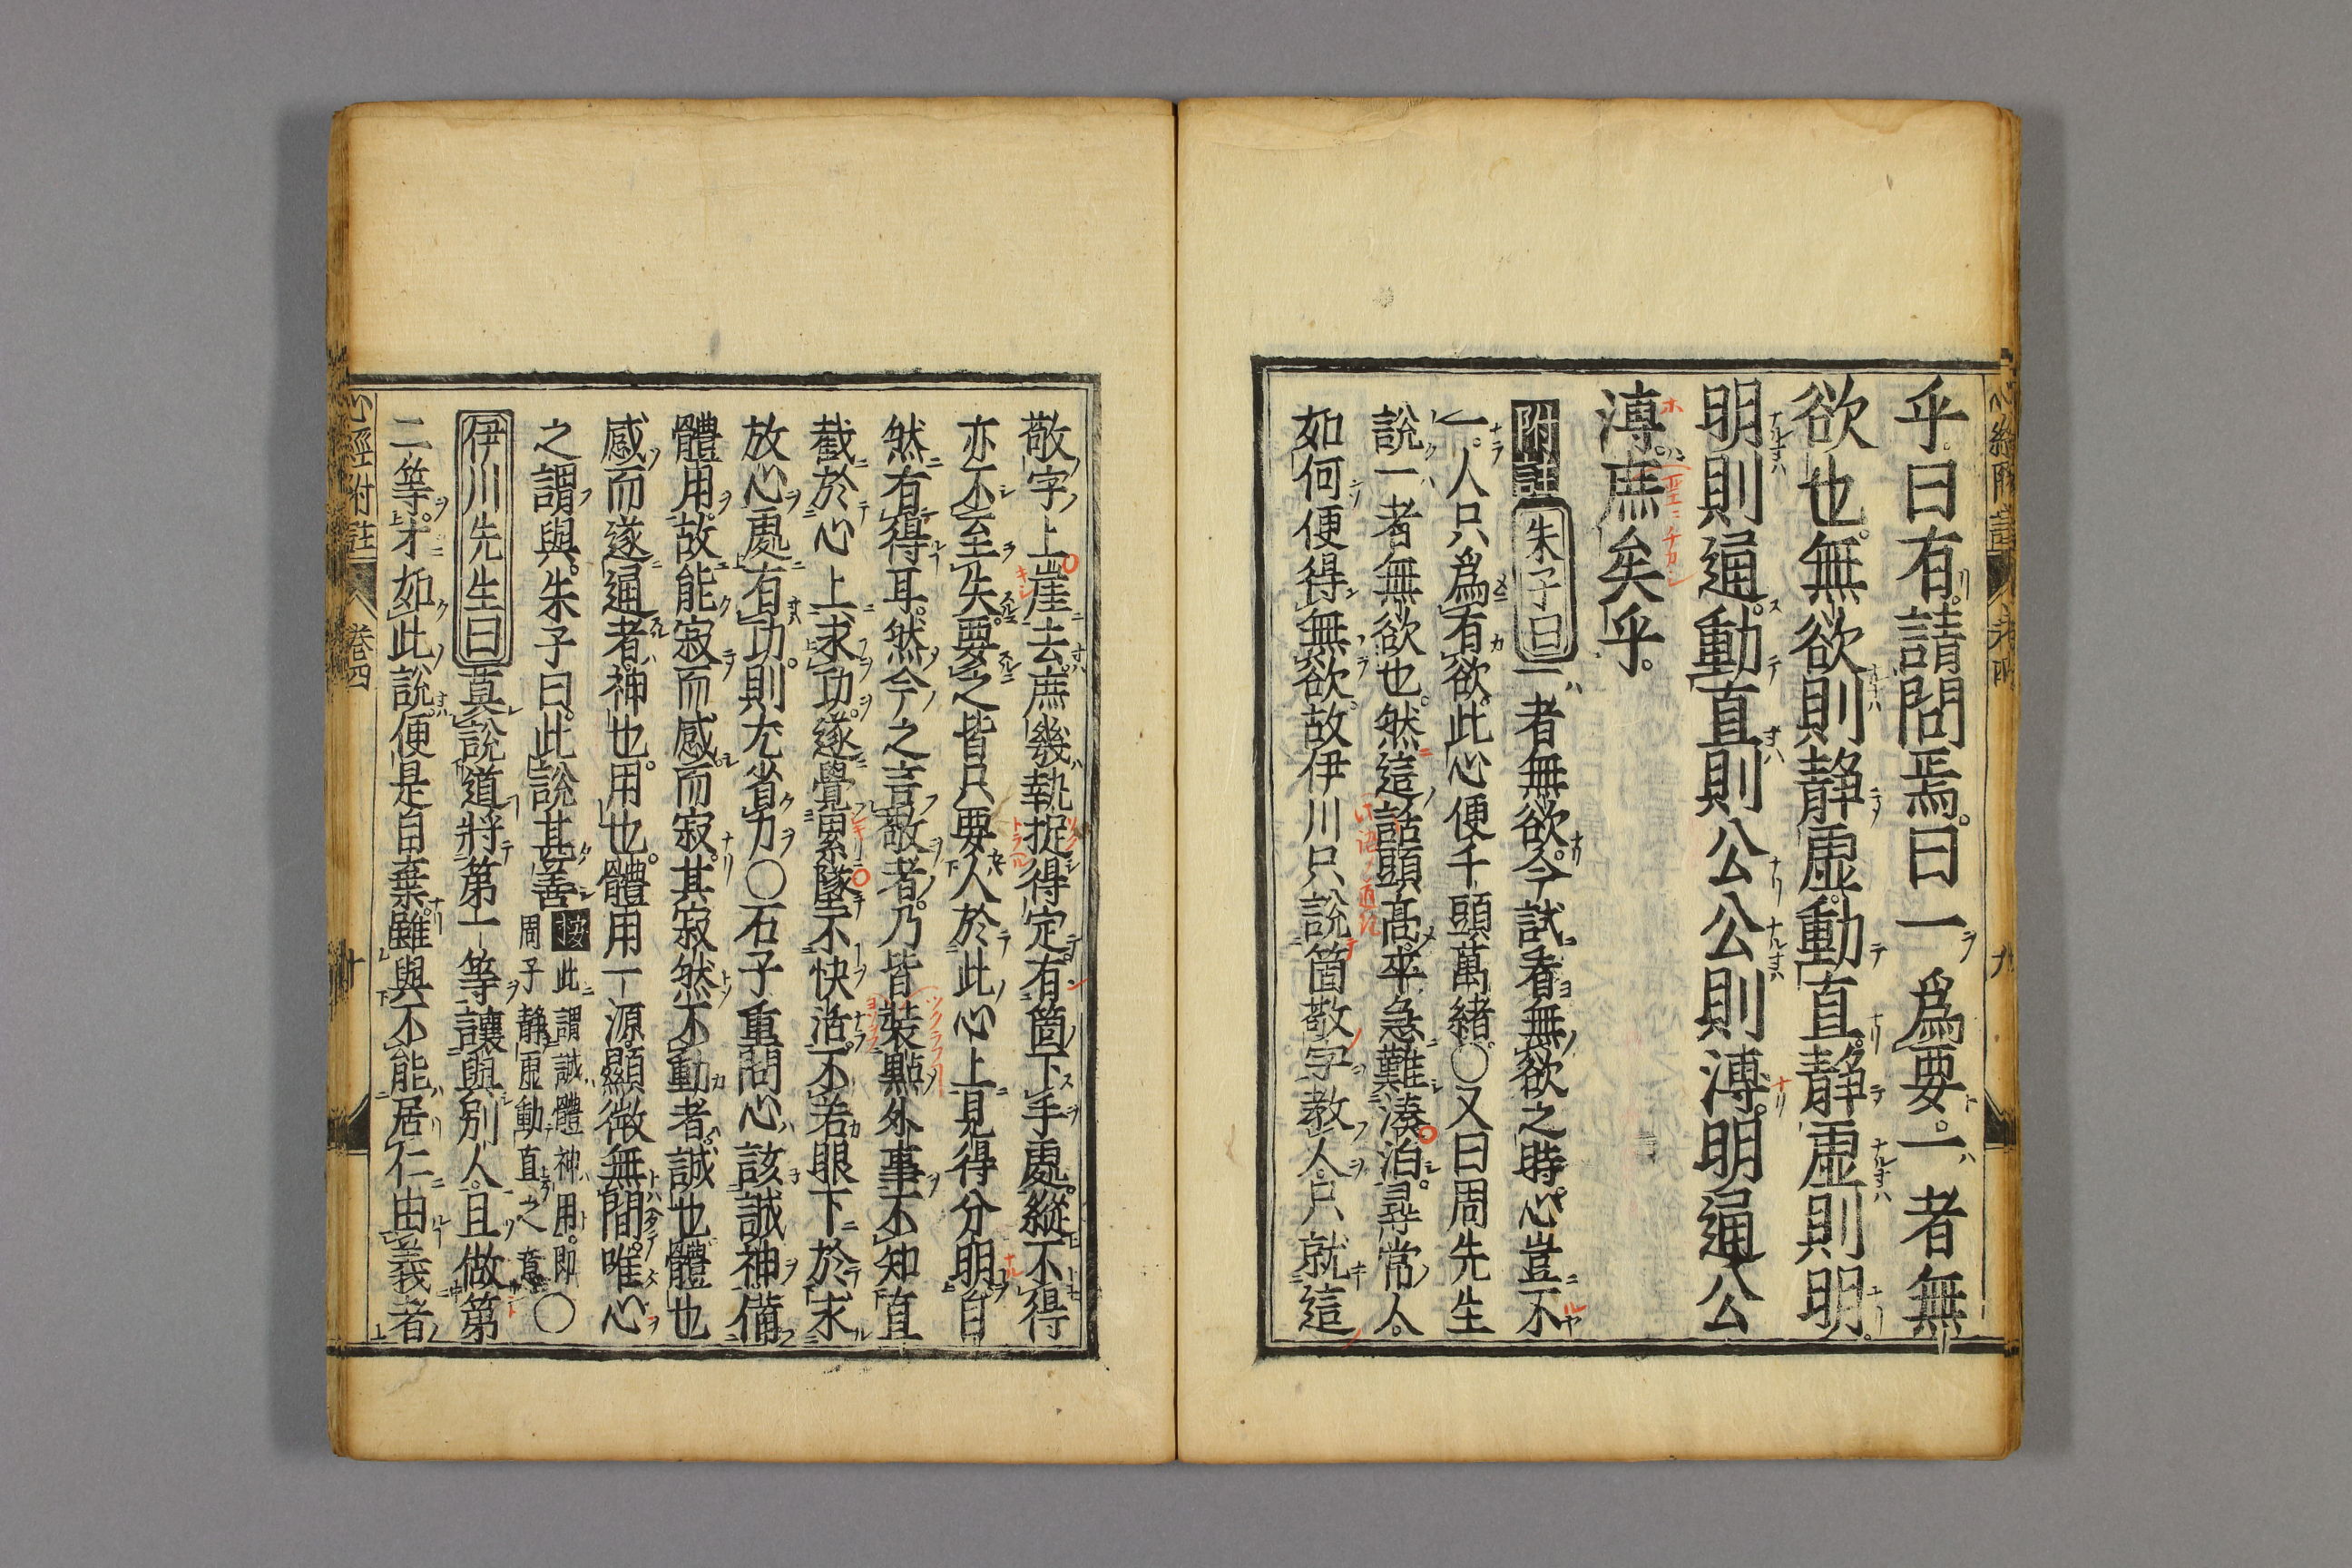 乎。曰有。請問焉。曰一爲要。一者無
欲也。無欲則静虚。動直。静虚則明。
明則通。動直則公。公則溥。明通公
溥。庶矣乎。
附註 朱子曰一者無欲。今試看無欲之時。心豈不
一。人只爲有欲。此心便千頭萬緒。〇又曰周先生
說一者無欲也。然這話頭高。卒急難湊泊。尋常人。
如何便得無欲。故伊川只說箇敬字教人。只就這
敬字上崖去。庶幾執捉得定有箇下手處。縱不得
亦不至失。要之皆只要人於此心上見得分明自
然有得耳。然今之言敬者。乃皆裝點外事。不知直
截於心上求功。遂覺累墜不快活。不若眼下於求
放心處有功。則尤省力〇石子重問心該誠神備
體用。故能寂而感。而寂。其寂然不動者。誠也體也
感而遂通者。神也。用也。體用一源。顯微無間。唯心
之謂與。朱子曰。此說甚善 按此謂誠體神用。即
周子静虚動直之意 〇
伊川先生曰莫說道將第一等讓與別人。且做第
二等。才如此說。便是自棄。雖與不能居仁由義者
心經附註 卷四 十